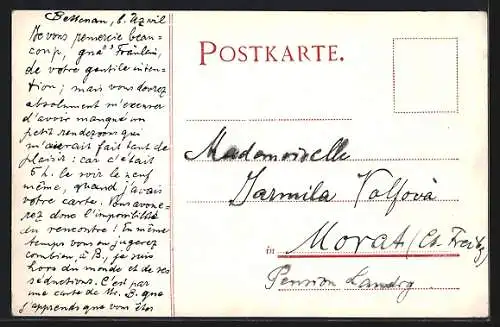 Bettenau, b. Uzwil
Je vous remercie beau-
coup, gnä' Fräulein,
de votre gentile inten-
tion; mais vous devez
absolument m'excuser
d'avoir manqué un
petit rendezvous qui
m'aurait fait tant de
plaisir: car c'était
5 h. le soir le neuf
même, quand j'avais
votre carte. Vous avoue-
rez donc l'impossibilité
du rencontre! En même
temps vous en jugerez
combien, à B., je suis
hors du monde et de ses
séductions. C'est par
une carte de M. B. que
j'apprends que vous êtes
POSTKARTE.
Mademoiselle
Jarmila Volfová
in Morat (Ct. Freibg)
Pension Landry